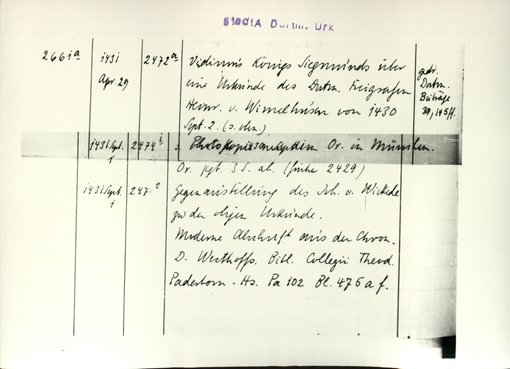 StadtA Dortm. Urk
2661a 1431 Apr. 29 2472a Vidimus Königs Siegmunds über
eine Urkunde des Dortm. Freigrafen
Heinr. v. Wimelhusen von 1430
Sept. 2. (s. oben)
gedr.
Dortm.
Beiträge
39, 145 ff.
1431 Sept. 1 2474 Or. in München.
Or. pgt. 3 S. ab. (früher 2429)
1431 Sept. 1 247 Gegenausstellung des Joh. v. Wickede
zu der obigen Urkunde.
Moderne Abschrift aus der Chron.
D. Westhoffs. Bibl. Collegii Theod.
Paderborn. Hs. Pa 102 Bl. 475 a f.